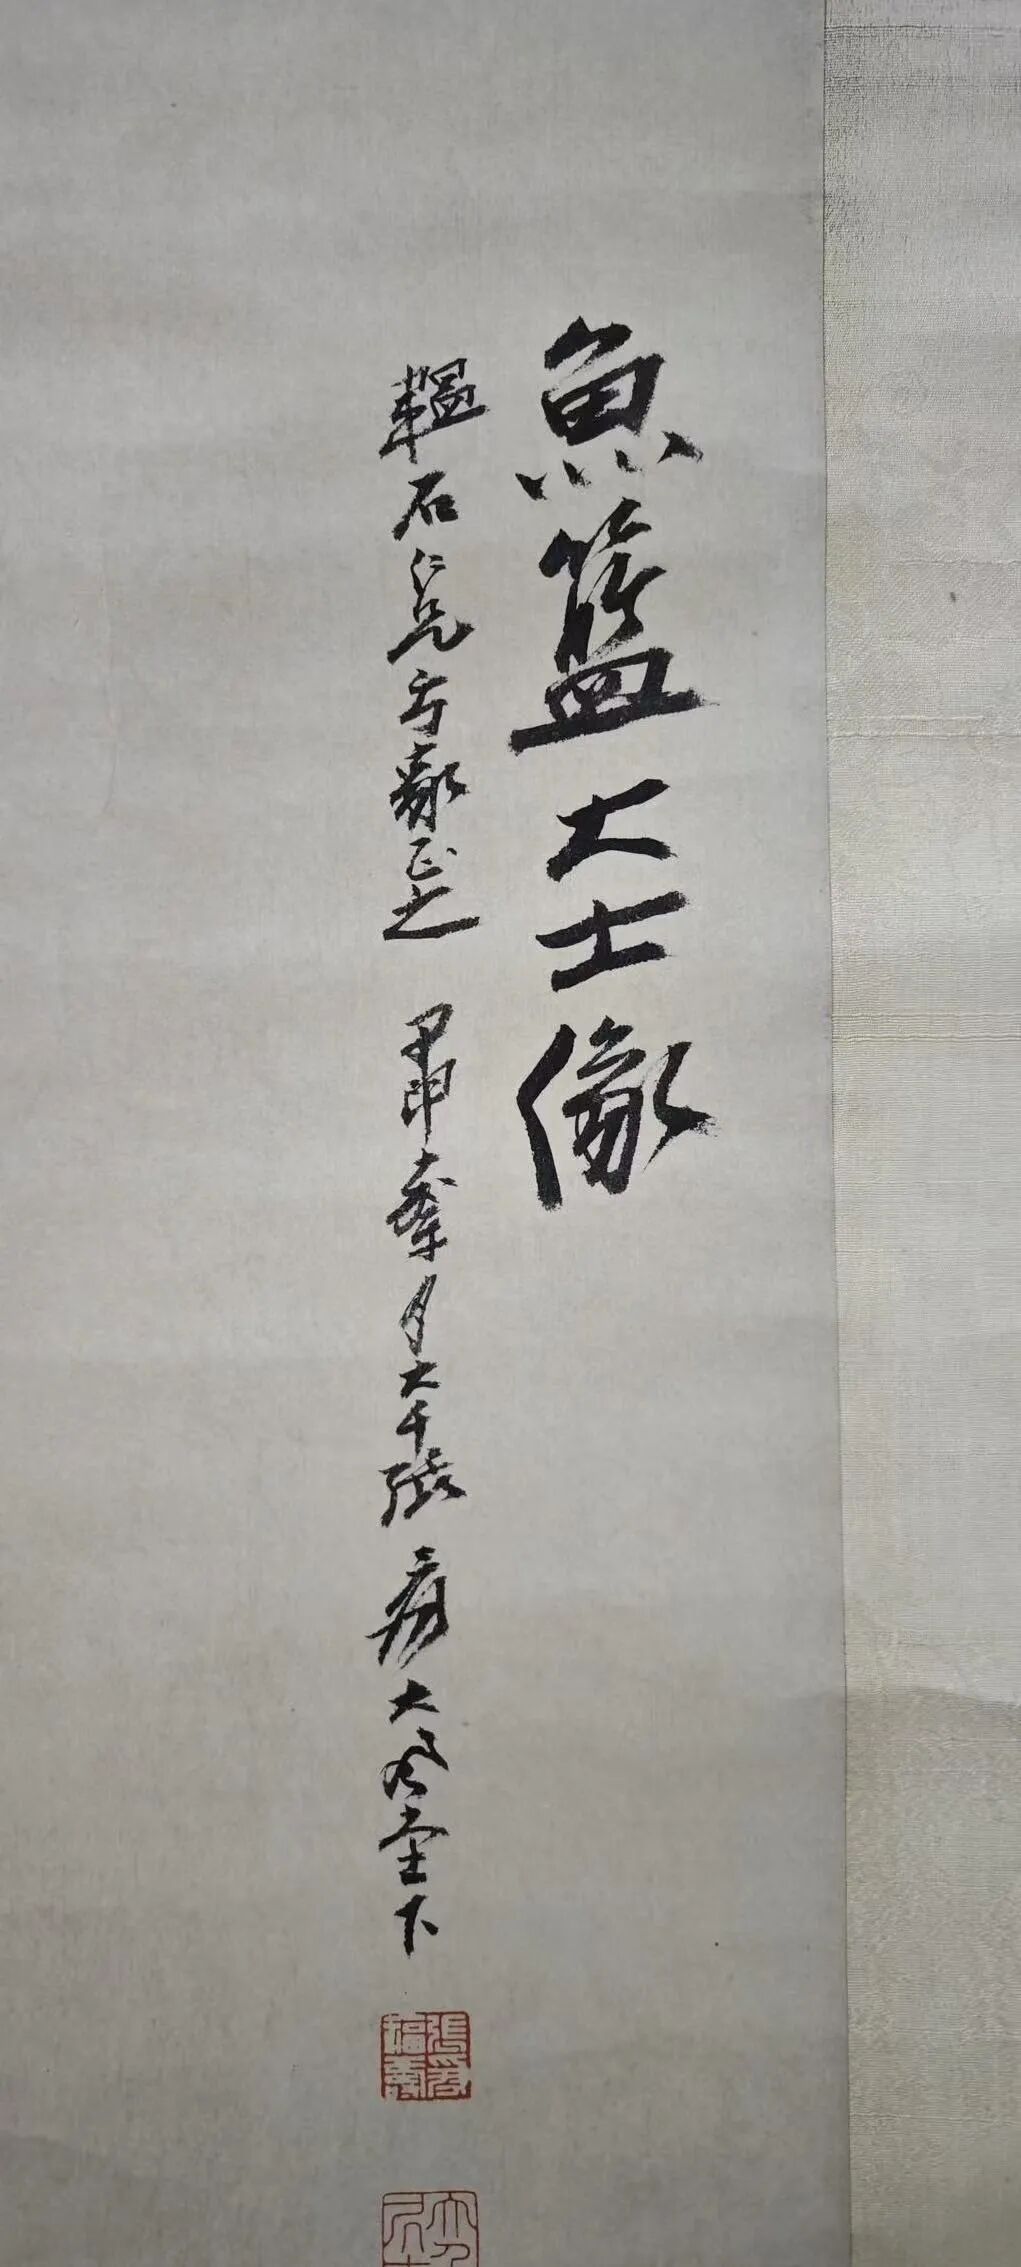 魚籃大士像
韞石仁兄方家正之 甲申月大千張爰大風堂下
張爰福壽